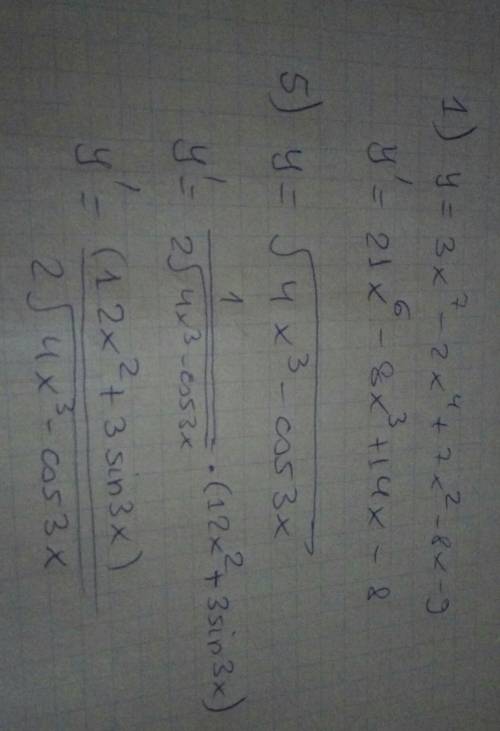 1) y = 3x⁷ - 2x⁴ + 7x² - 8x - 9
y' = 21x⁶ - 8x³ + 14x - 8
5) y = √(4x³ - cos3x)
y' = 1/(2√(4x³ - cos3x)) · (12x² + 3sin3x)
y' = (12x² + 3sin3x)/(2√(4x³ - cos3x))